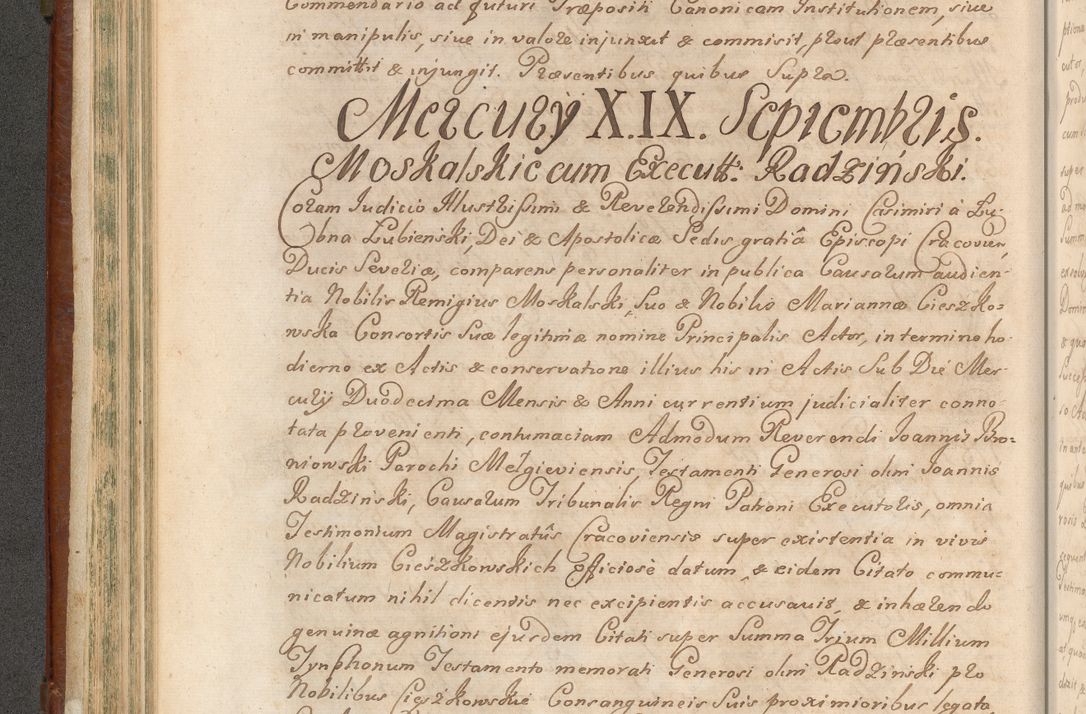 Commendario ad futuri Præpositi Canonicam Institutionem, siue
in manipulis, siue in valore injunxit & commisit, prout præsentibus
committit & injungit. Præsentibus quibus Supra.
Mercurÿ XIX. Septembris.
Moskalskie cum Executt: Radziński.
Coram Iudicio Illustrissimi & Reverendissimi Domini Casimiri à Łu-
bna Łubieński, Dei & Apostolicæ Sedis gratiâ Episcopi Cracovien,
Ducis Severiæ, comparens personaliter in publica Causarum audien-
tia Nobilis Remigius Moskalski, suo & Nobilis Mariannæ Cieszko-
wska Consortis suæ legitimæ nomine Principalis Actor, in termino ho-
dierno ex Actis & conservatione illius his in Actis Sub Die Mer-
curÿ Duodecima Mensis & Anni currentium judicialiter conno-
tata provenienti, contumaciam Admodum Reverendi Ioannis Bro-
niowski Parochi Melgieviensis, Testamenti Generosi olim Ioannis
Radzinski, Causarum Tribunalis Regni Patroni Executoris, omnia
Testimonium Magistratûs Cracoviensis super existentia in vivis
Nobilium Cieszkowskich officiosè datum, & eidem Citato commu-
nicatum nihil dicentis nec excipientis accusavit, & inhærendo
genuinæ agnitioni ejusdem Citati super Summa Trium Millium
Tynphonum Testamento memorati Generosi olim Radzinski pro
Nobilibus Cieszkowskie Consanguineis suis proximioribus legata